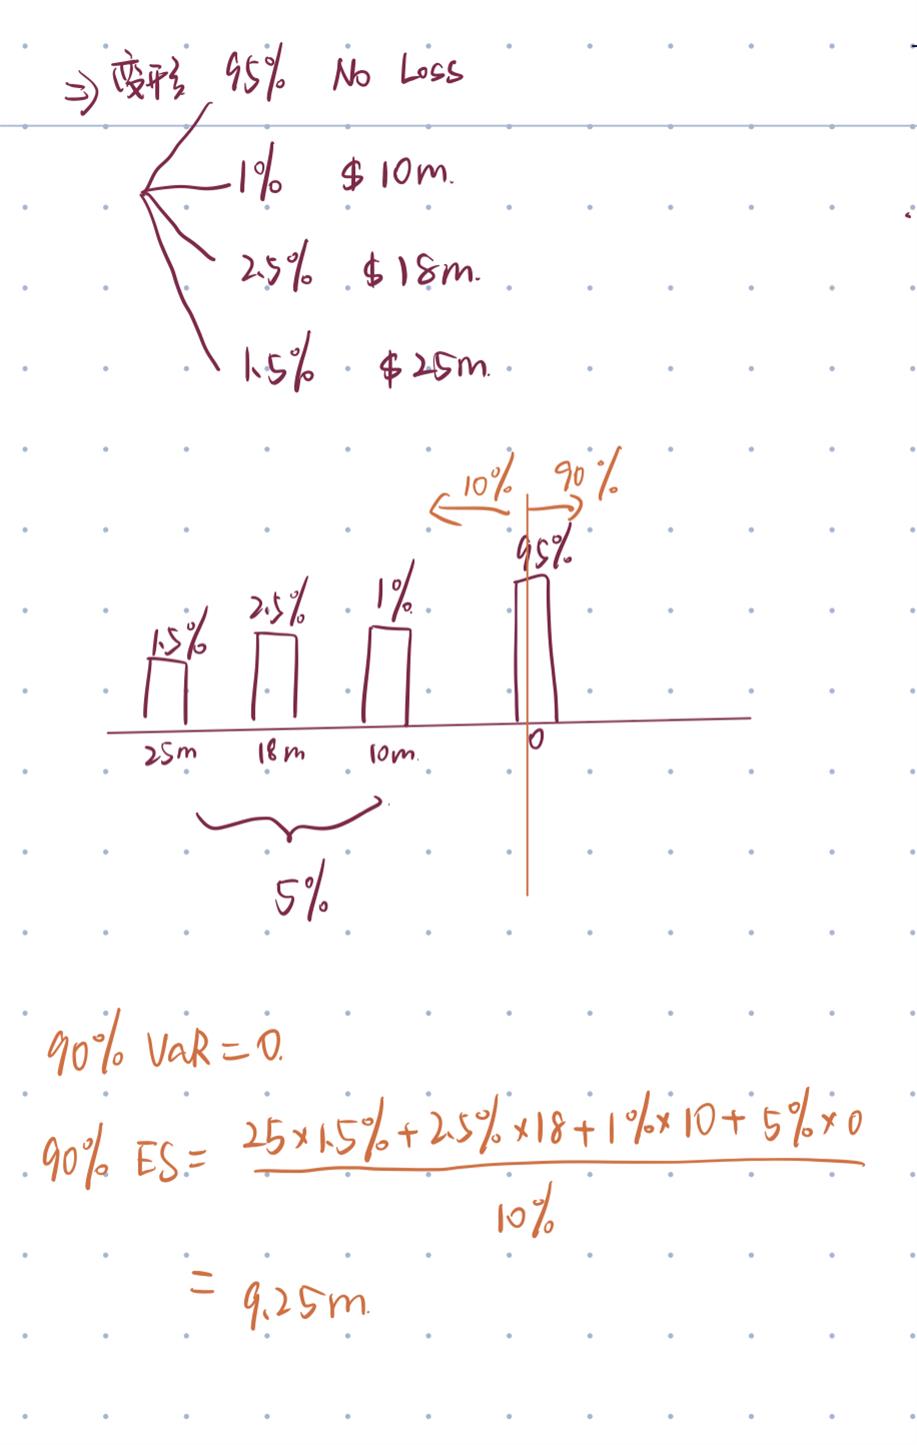 ⇒ 变形 95% No Loss
1% $10m.
2.5% $18m.
1.5% $25m.
10% 90%
95%
1.5% 2.5% 1%
25m 18m 10m. 0
5%
90% VaR = 0.
90% ES = 25×1.5% + 2.5%×18 + 1%×10 + 5%×0
10%
= 9.25m.